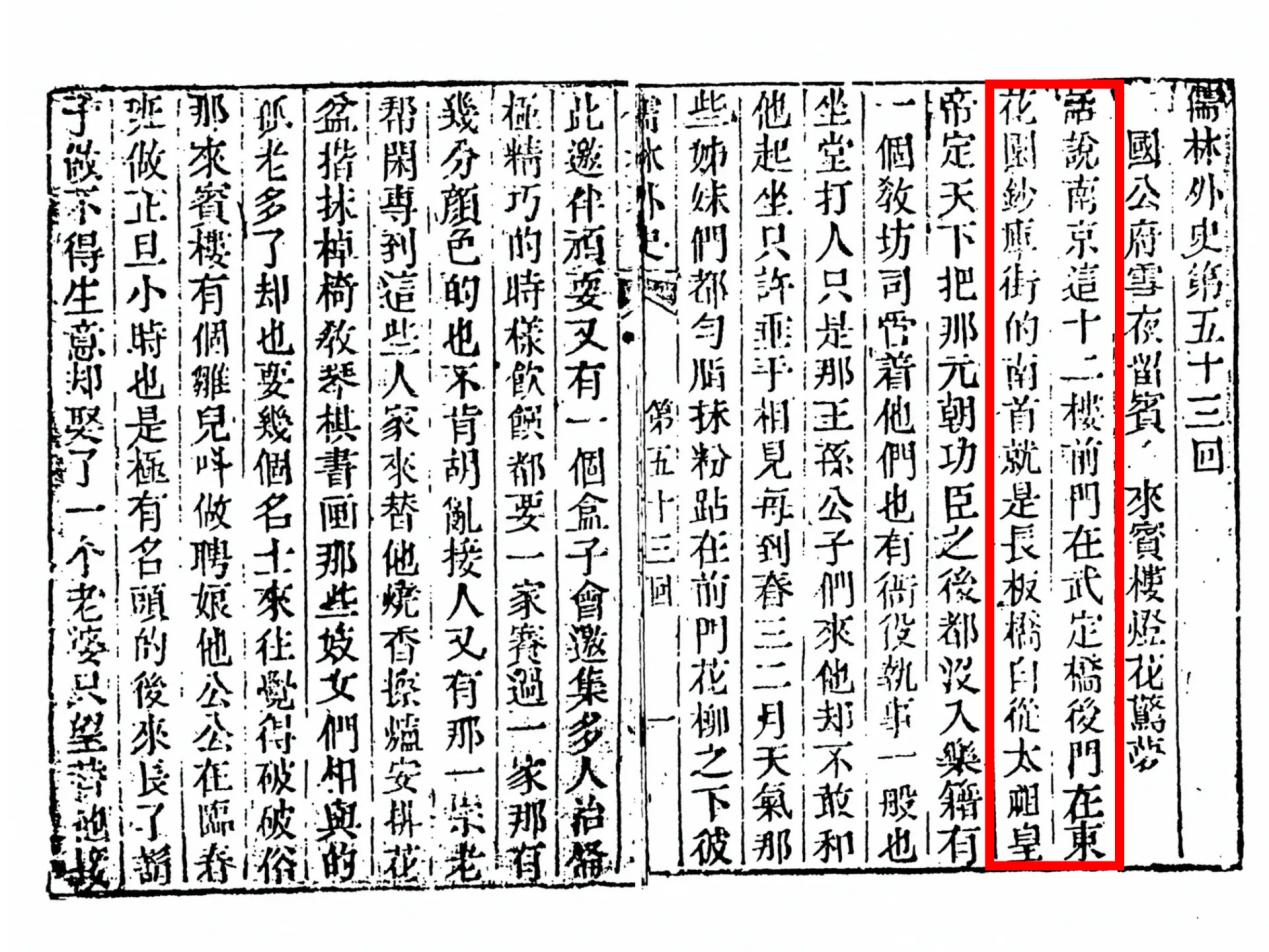 儒林外史第五十三回
國公府雪夜留賓　來賓樓燈花驚夢
話說南京這十二樓前門在武定橋後門在東
花園鈔庫街的南首就是長板橋自從太祖皇
帝定天下把那元朝功臣之後都沒入樂籍有
一個敎坊司管着他們也有衙役執事一般也
坐堂打人只是那王孫公子們來他却不敢和
他起坐只許垂手相見每到春三二月天氣那
些姊妹們都勻脂抹粉跕在前門花柳之下彼
儒林外史　第五十三回　一
此邀伴頑耍又有一個盒子會邀集多人治備
極精巧的時樣飲饌都要一家賽過一家那有
幾分顏色的也不肯胡亂接人又有那一宗老
帮閑專到這些人家來替他燒香擦爐安排花
盆揩抹棹椅敎琴棋書画那些妓女們相與的
孤老多了却也要幾個名士來往覺得破破俗
那來賓樓有個雛兒呌做聘娘他公公在臨春
班做正旦小時也是極有名頭的後來長了鬍
子做不得生意却娶了一个老婆只望替他接